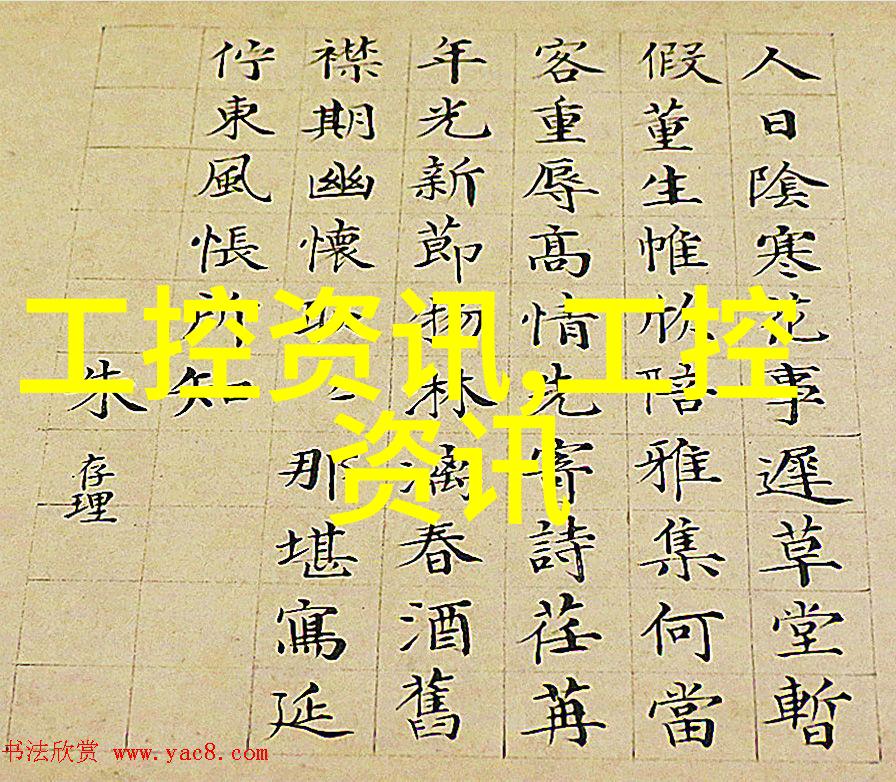 人日陰寒花事遲草堂暫
假董生帷欣陪雅集何當
客重辱高情先寄詩荏苒
年光新節林漓春酒舊
襟期幽懷那堪寫延
佇東風悵所知
朱存理
工控资讯,工控
资讯
书法欣赏 www.yac8.com